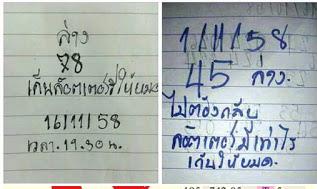 ล่าง
78
เก็บล๊อตเตอรี่ให้หมด
16/11/58
เวลา.19.30น.
1/11/58
45 ล่าง.
ไม่ต้องกลับ
ล๊อตเตอรี่มีเท่าไร
เก็บให้หมด.